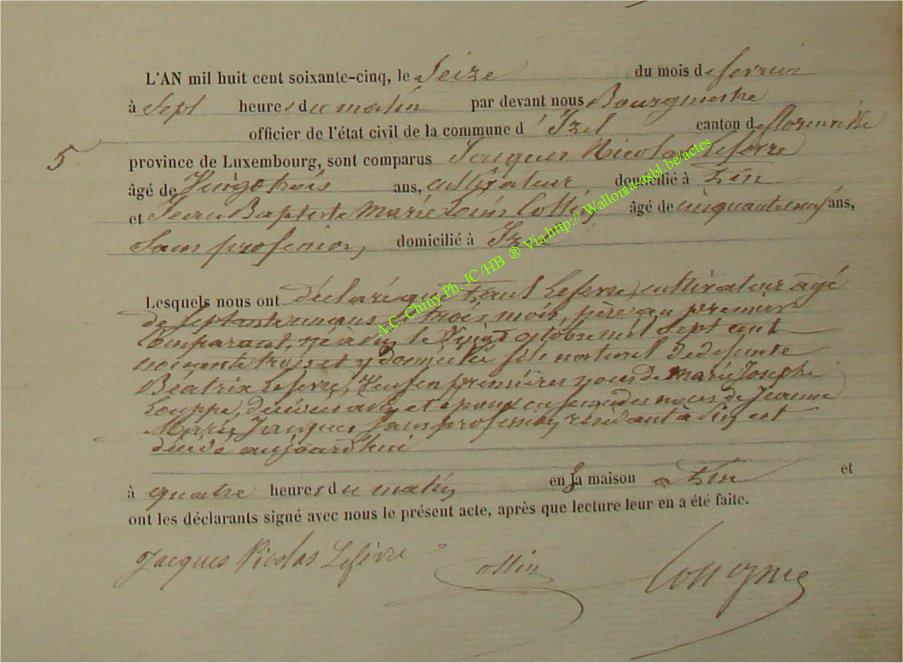 L'AN mil huit cent soixante-cinq, le Seize du mois de fevrier
à Sept heures du matin par devant nous Bourgmestre
officier de l'état civil de la commune d'Izel canton de florenville
5
province de Luxembourg, sont comparus Jacques Nicolas Lefèvre
âgé de Vingt trois ans, cultivateur domicilié à
et Jean Baptiste Marie Louis Collin âgé de cinquante neuf ans,
Sans profession domicilié à Izel
Lesquels nous ont déclaré que Paul Lefevre, cultivateur âgé
de Septante un ans trois mois, père au premier
Comparant, né à le Vingt octobre mil Sept cent
nonante trois et y domicilié fils naturel de defunte
Béatrix Lefevre, Veuf en premières de Marie Josephe
Louppe, et époux en secondes noces de Jeanne
Marie Jacques Sans profession, résidant à est
décédé aujourd'hui
à quatre heures du matin en sa maison à et
ont les déclarants signé avec nous le présent acte, après que lecture leur en a été faite.
Jacques Nicolas Lefèvre Collin
A.C. Chiny Ph. JC /HB ® Via http:// Wallonia-asbl.be/actes